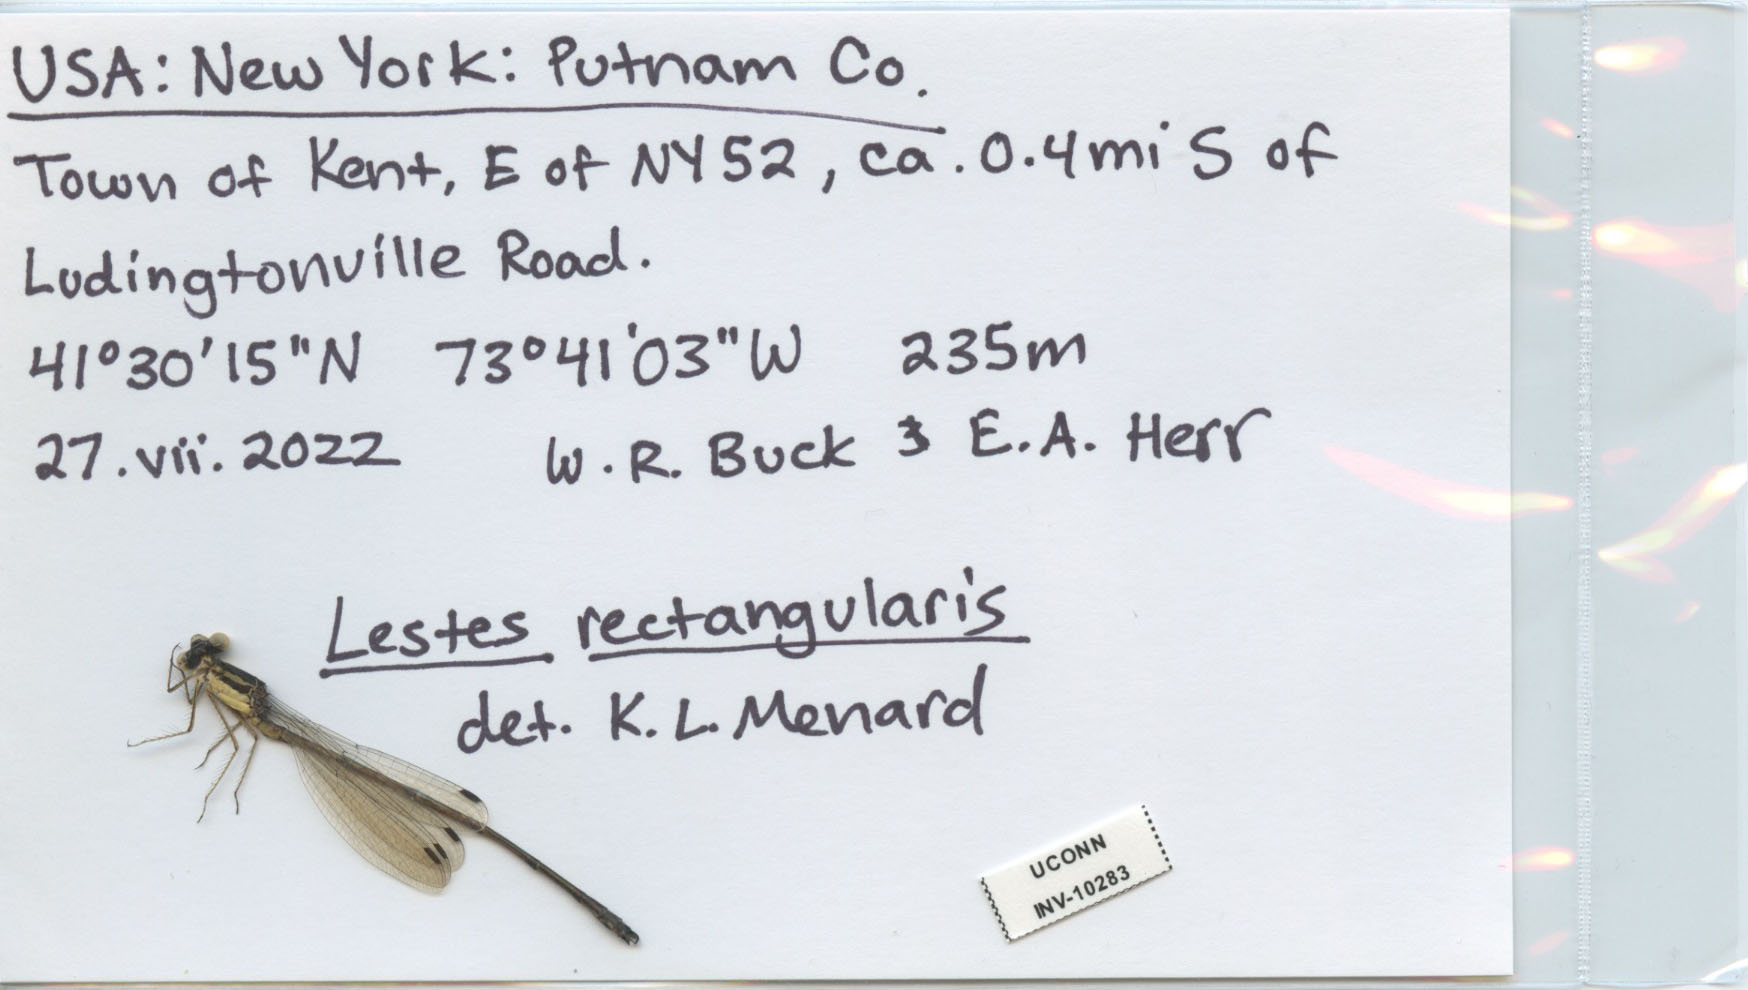 USA: New York: Putnam Co.
Town of Kent, E of NY52, ca. 0.4mi S of
Ludingtonville Road.
41°30'15"N 73°41'03"W 235m
27.vii.2022 W.R. Buck & E.A. Herr
Lestes rectangularis
det. K.L. Menard
UCONN
INV-10283